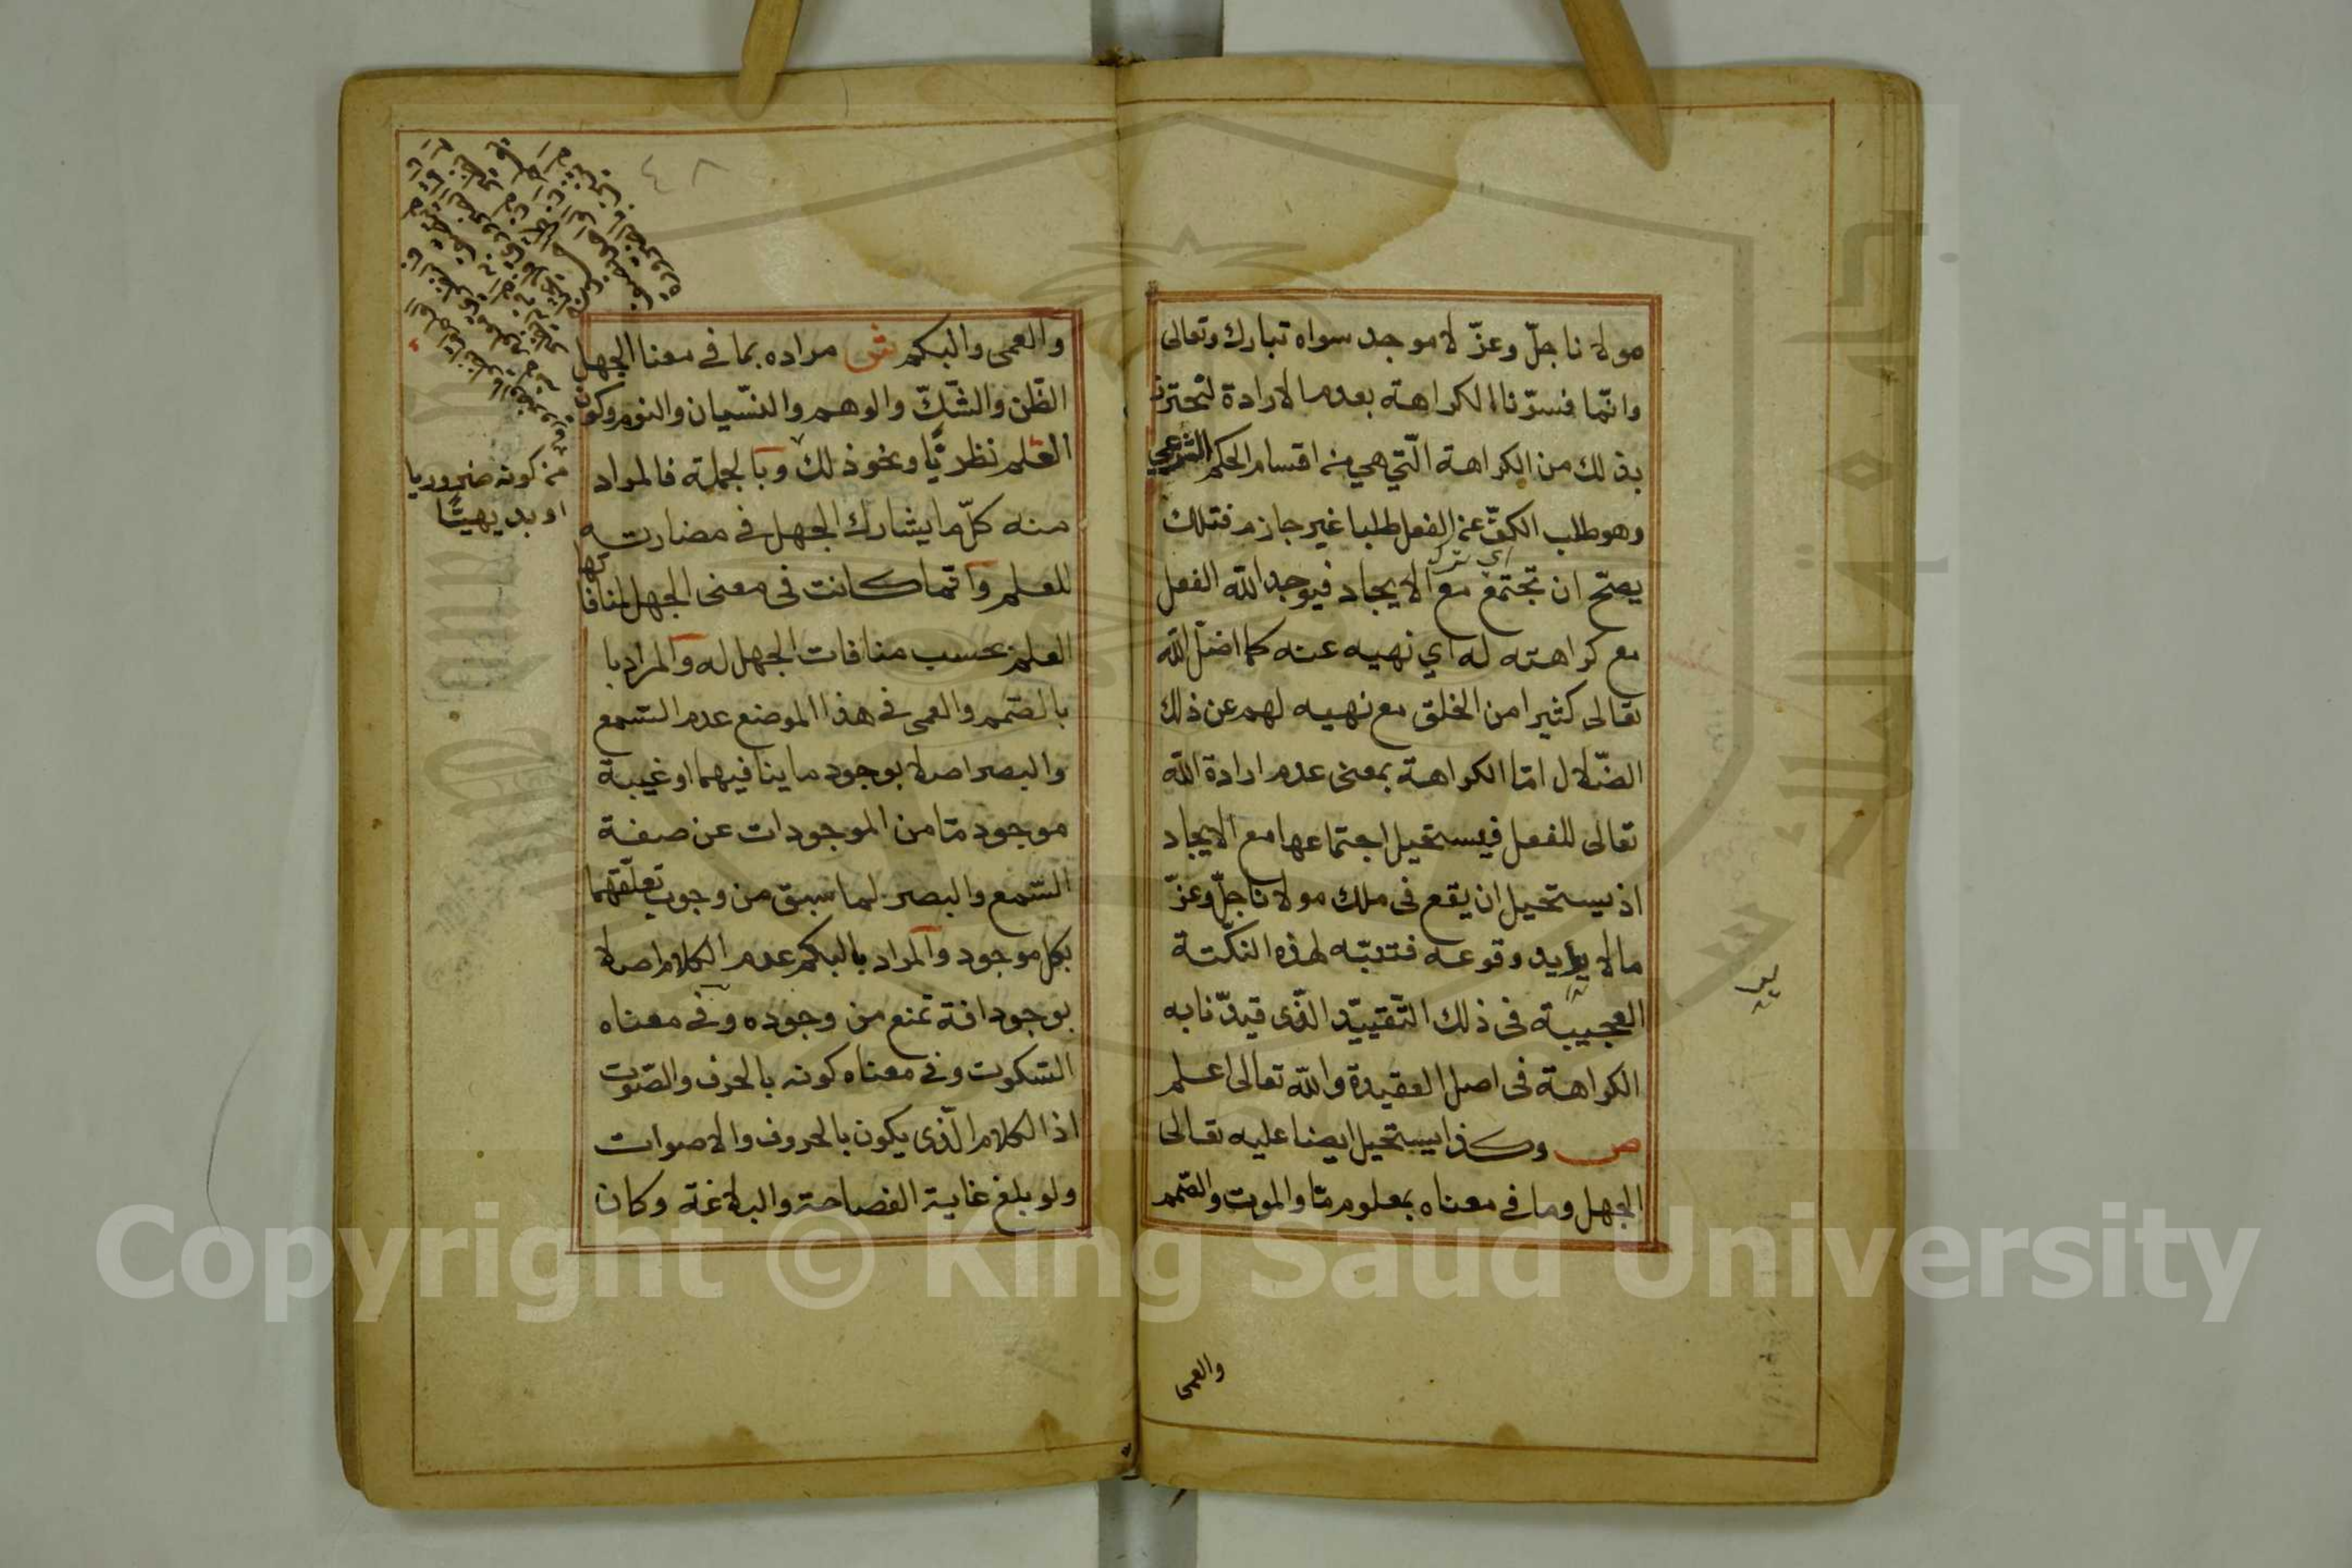 مولانا جلّ وعزّ لا موجد سواه تبارك وتعالى
وانّما فسرّنا الكراهة بعدم الارادة لتحترز
بذلك من الكراهة الّتي هي من اقسام الحكم الشرعي
وهو طلب الكفّ عن الفعل طلبا غير جازم فتلك
اي ترك
يصحّ ان تجتمع مع الايجاد فيوجد اللّه الفعل
مع كراهته له اي نهيه عنه كما اضلّ اللّه
تعالى كثيرا من الخلق مع نهيه لهم عن ذلك
الضّلال امّا الكراهة بمعنى عدم ارادة اللّه
تعالى للفعل فيستحيل اجتماعها مع الايجاد
اذ يستحيل ان يقع فى ملك مولانا جلّ وعزّ
ما لا يريد وقوعه فتنبّه لهذه النكّتة
العجيبة فى ذلك التّقييّد الّذى قيدّنا به
الكراهة فى اصل العقيدة واللّه تعالى اعلم
ص وكذا يستحيل ايضا عليه تعالى
الجهل وما فى معناه بمعلوم مّا والموت والصّمم
والعمى
٤٨
والعمى والبكم ش مراده بما في معنا الجهل
الظّن والشّكّ والوهم والنسّيان والنوم وكون
العلم نظريًّا ونحو ذلك وبالجملة فالمراد
منه كلّ ما يشارك الجهل في مضارته
للعلم وانّما كانت فى معنى الجهل لمنافاتها
العلم بحسب منافات الجهل له والمراد با
بالصّمم والعمى في هذا الموضع عدم السّمع
والبصر اصلا بوجود ما ينافيهما او غيبة
موجود مّا من الموجودات عن صفة
السّمع والبصر لما سبق من وجوب تعلّقهما
بكل موجود والمراد بالبكم عدم الكلام اصلا
بوجود افة تمنع من وجوده وفي معناه
السّكوت وفي معناه كونه بالحرف والصّوت
اذ الكلام الّذى يكون بالحروف والاصوات
ولو بلغ غاية الفصاحة والبلاغة وكان
من كونه ضروريا
او بديهيًّا
Copyright © King Saud University